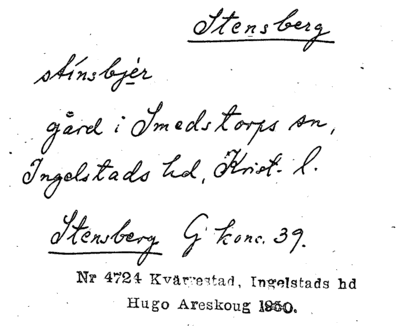 Stensberg
stínsbjér
gård i Smedstorps sn,
Ingelstads hd, Krist. l.
Stensberg G konc. 39.
Nr 4724 Kvärrestad, Ingelstads hd
Hugo Areskoug